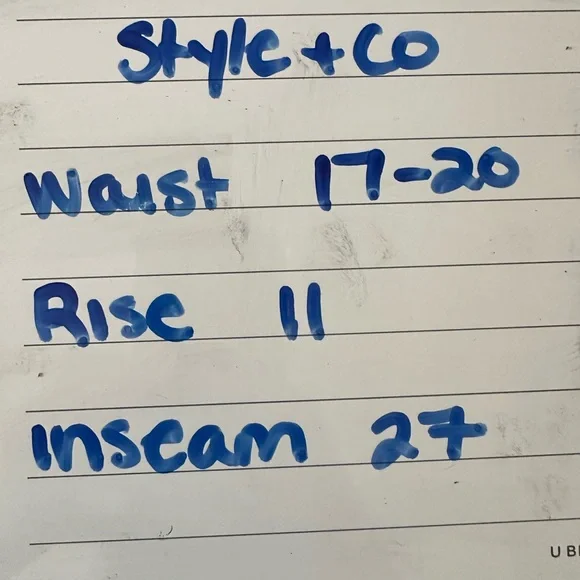 Style + Co
Waist 17-20
Rise 11
Inseam 27
U B